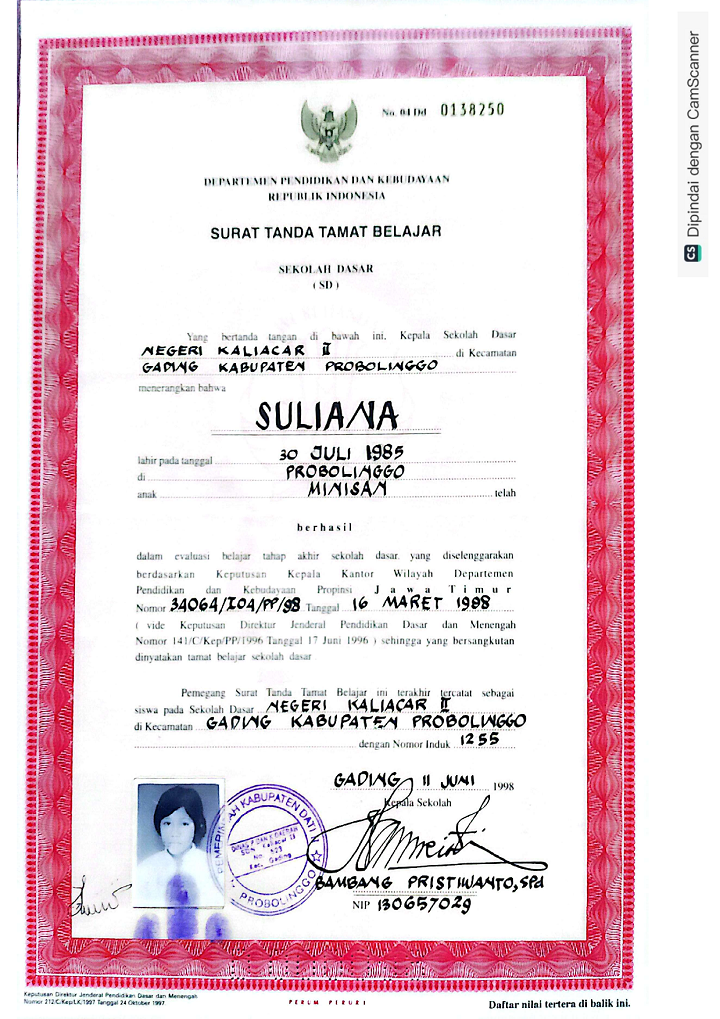 No. 04 Dd 0138250
DEPARTEMEN PENDIDIKAN DAN KEBUDAYAAN
REPUBLIK INDONESIA
SURAT TANDA TAMAT BELAJAR
SEKOLAH DASAR
( SD )
Yang bertanda tangan di bawah ini, Kepala Sekolah Dasar
NEGERI KALIACAR II di Kecamatan
GADING KABUPATEN PROBOLINGGO
menerangkan bahwa
SULIANA
lahir pada tanggal 30 JULI 1985
di PROBOLINGGO
anak MINISAN telah
berhasil
dalam evaluasi belajar tahap akhir sekolah dasar, yang diselenggarakan
berdasarkan Keputusan Kepala Kantor Wilayah Departemen
Pendidikan dan Kebudayaan Propinsi Jawa Timur
Nomor 34064/I04/PP/98 Tanggal 16 MARET 1998
( vide Keputusan Direktur Jenderal Pendidikan Dasar dan Menengah
Nomor 141/C/Kep/PP/1996 Tanggal 17 Juni 1996 ) sehingga yang bersangkutan
dinyatakan tamat belajar sekolah dasar.
Pemegang Surat Tanda Tamat Belajar ini terakhir tercatat sebagai
siswa pada Sekolah Dasar NEGERI KALIACAR II
di Kecamatan GADING KABUPATEN PROBOLINGGO
dengan Nomor Induk 1255
GADING 11 JUNI 1998
Kepala Sekolah
PEMERINTAH KABUPATEN DATI II
SDN Kaliacar II
No. 523
Kec. Gading
PROBOLINGGO
BAMBANG PRISTIWANTO, SPd
NIP 130657029
Keputusan Direktur Jenderal Pendidikan Dasar dan Menengah
Nomor 212/C/Kep/LK/1997 Tanggal 24 Oktober 1997
PERUM PERURI
Daftar nilai tertera di balik ini.
CS Dipindai dengan CamScanner